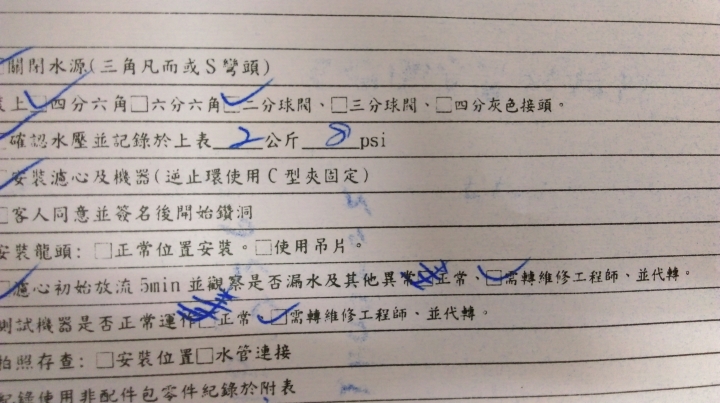 關閉水源(三角凡而或S彎頭)
上☑四分六角☐六分六角☑二分球閥、☐三分球閥、☐四分灰色接頭。
確認水壓並記錄於上表 2 公斤 8 psi
安裝濾心及機器(逆止環使用C型夾固定)
☐客人同意並簽名後開始鑽洞
安裝龍頭:☐正常位置安裝。☐使用吊片。
濾心初始放流5min並觀察是否漏水及其他異常 正常、☑需轉維修工程師、並代轉。
測試機器是否正常運作 正常 ☑需轉維修工程師、並代轉。
拍照存查:☐安裝位置☐水管連接
紀錄使用非配件包零件紀錄於附表